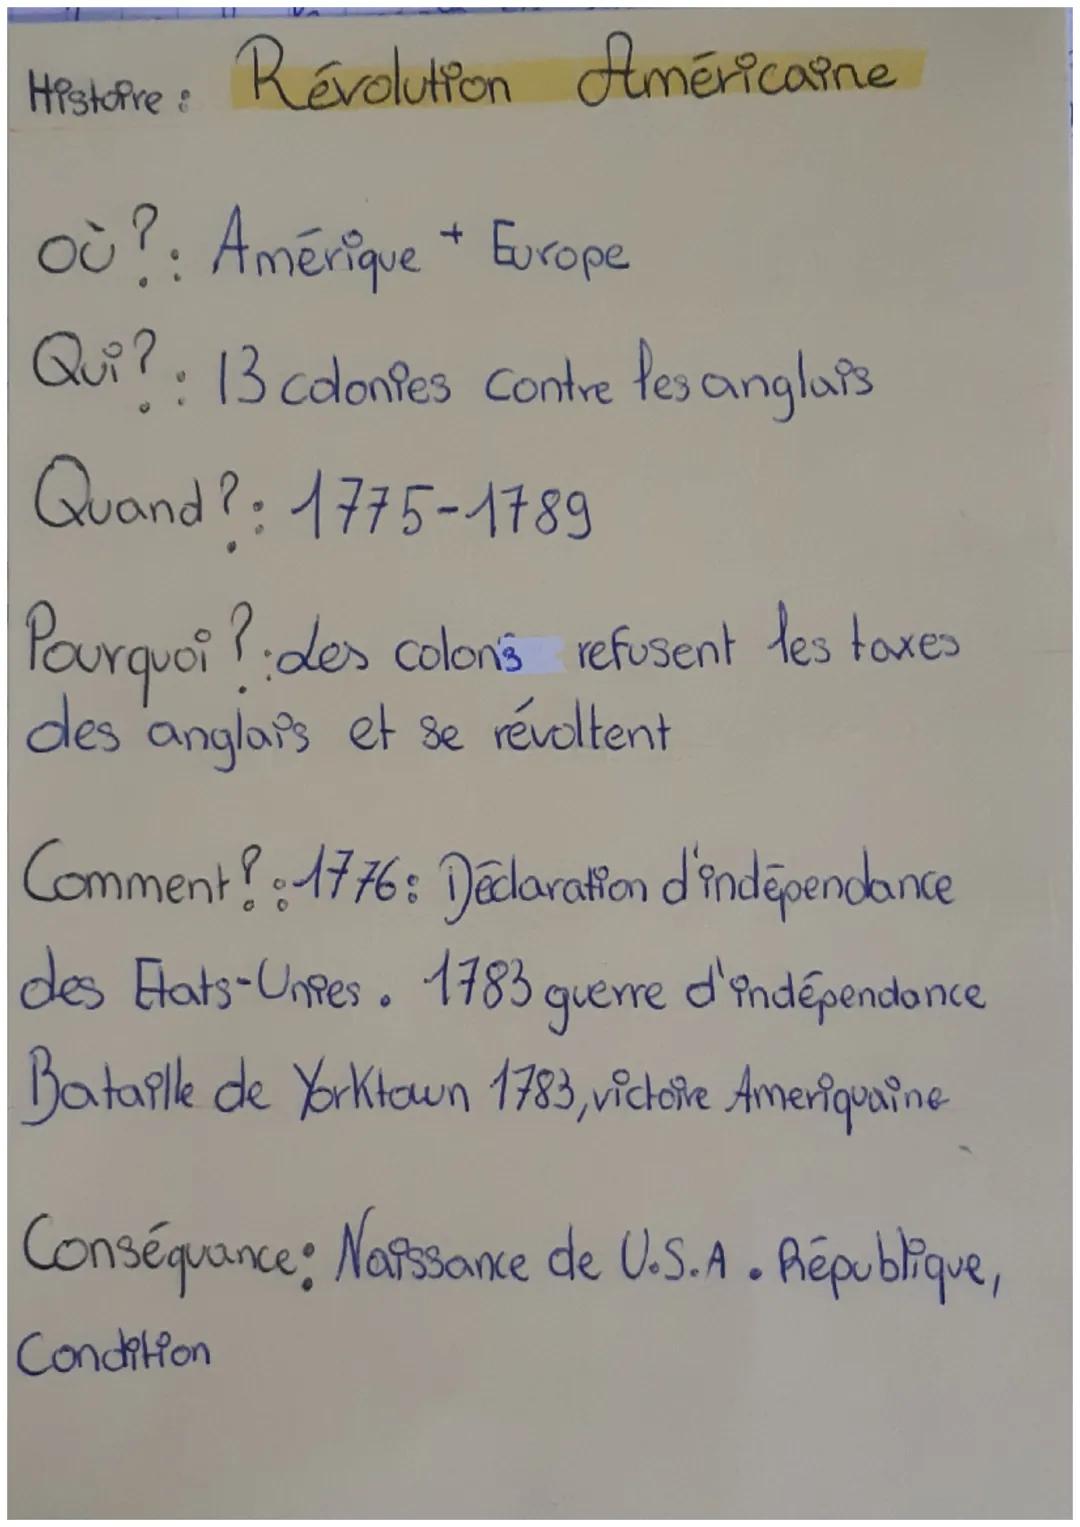 Histoire : Révolution Américaine
où ? : Amérique + Europe
Qui ? : 13 colonies contre les anglais
Quand ? : 1775-1789
Pourquoi ? : des colons refusent les taxes
des anglais et se révoltent
Comment ? : 1776 : Déclaration d'indépendance
des Etats-Unies. 1783 guerre d'indépendance
Bataille de Yorktown 1783, victoire Ameriquaine
Conséquance : Naissance de U.S.A. République,
Condition